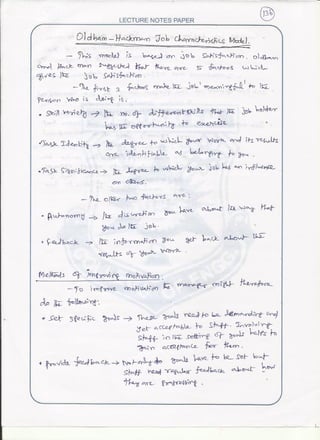 LECTURE NOTES PAPER
136
Oldham-Hackman Job Characteristics Model.
- This model is based on job Satisfaction. oldham
and Hack man Suggested that there are 5 factors which
gives the job Satisfaction.
- The first 3 factors make the job 'meaningful' to the
Person who is doing is,
• Skill variety → the no. of different skills that the job holder
has the opportunity to exercise
• Task Identity → the degree to which your work and its results
are identifiable as belonging to you.
• Task Significance → the degree to which your job has an influence
on others.
- The other two factors are:
• Autonomy → the discretion you have about the way that
you do the job
• feedback → the information you get back about the
results of your work.
Methods of improving motivation:
- To improve motivation the manager might therefore
do the following:
• Set specific goals → These goals need to be demanding and
yet acceptable to staff. Involving
staff in the setting of goals helps to
gain acceptance for them.
• Provide feedback → Not only do goals have to be set but
staff need regular feedback about how
they are progressing.